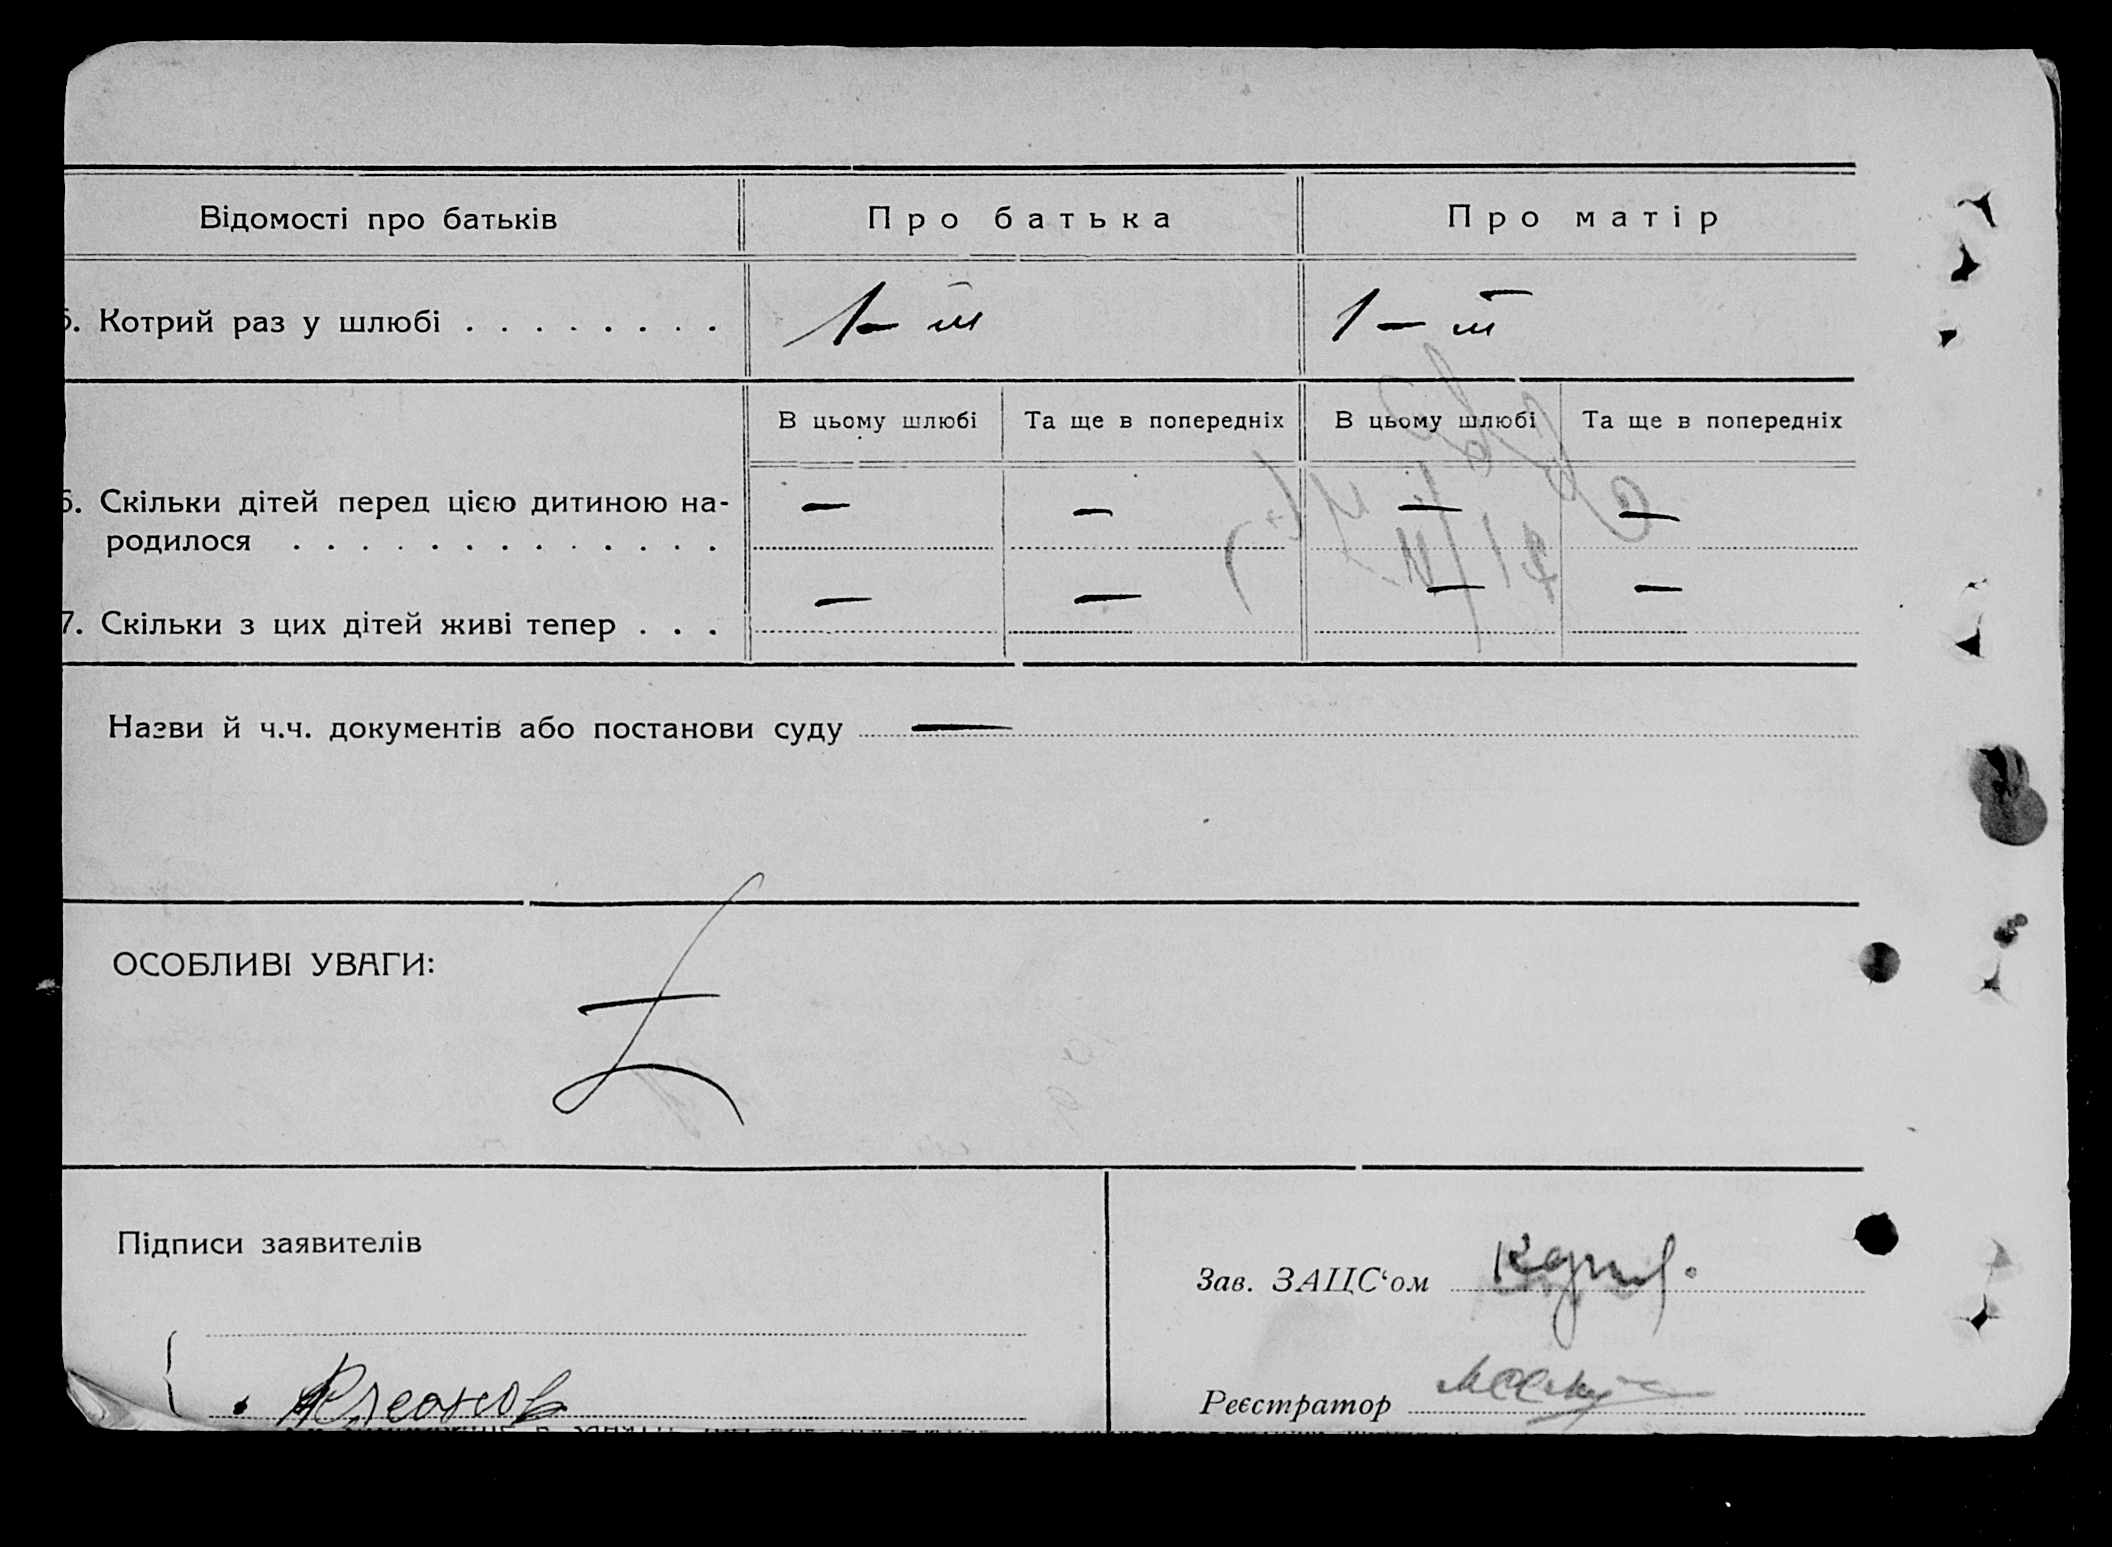 Відомості про батьків
Про батька
Про матір
5. Котрий раз у шлюбі . . . . . . . .
1-ш
1-ш
В цьому шлюбі
Та ще в попередніх
В цьому шлюбі
Та ще в попередніх
6. Скільки дітей перед цією дитиною на-
родилося . . . . . . . . . . . . .
— — — —
7. Скільки з цих дітей живі тепер . . .
— — — —
Назви й ч.ч. документів або постанови суду —
ОСОБЛИВІ УВАГИ:
Підписи заявителів
Зав. ЗАЦС‘ом
Реєстратор